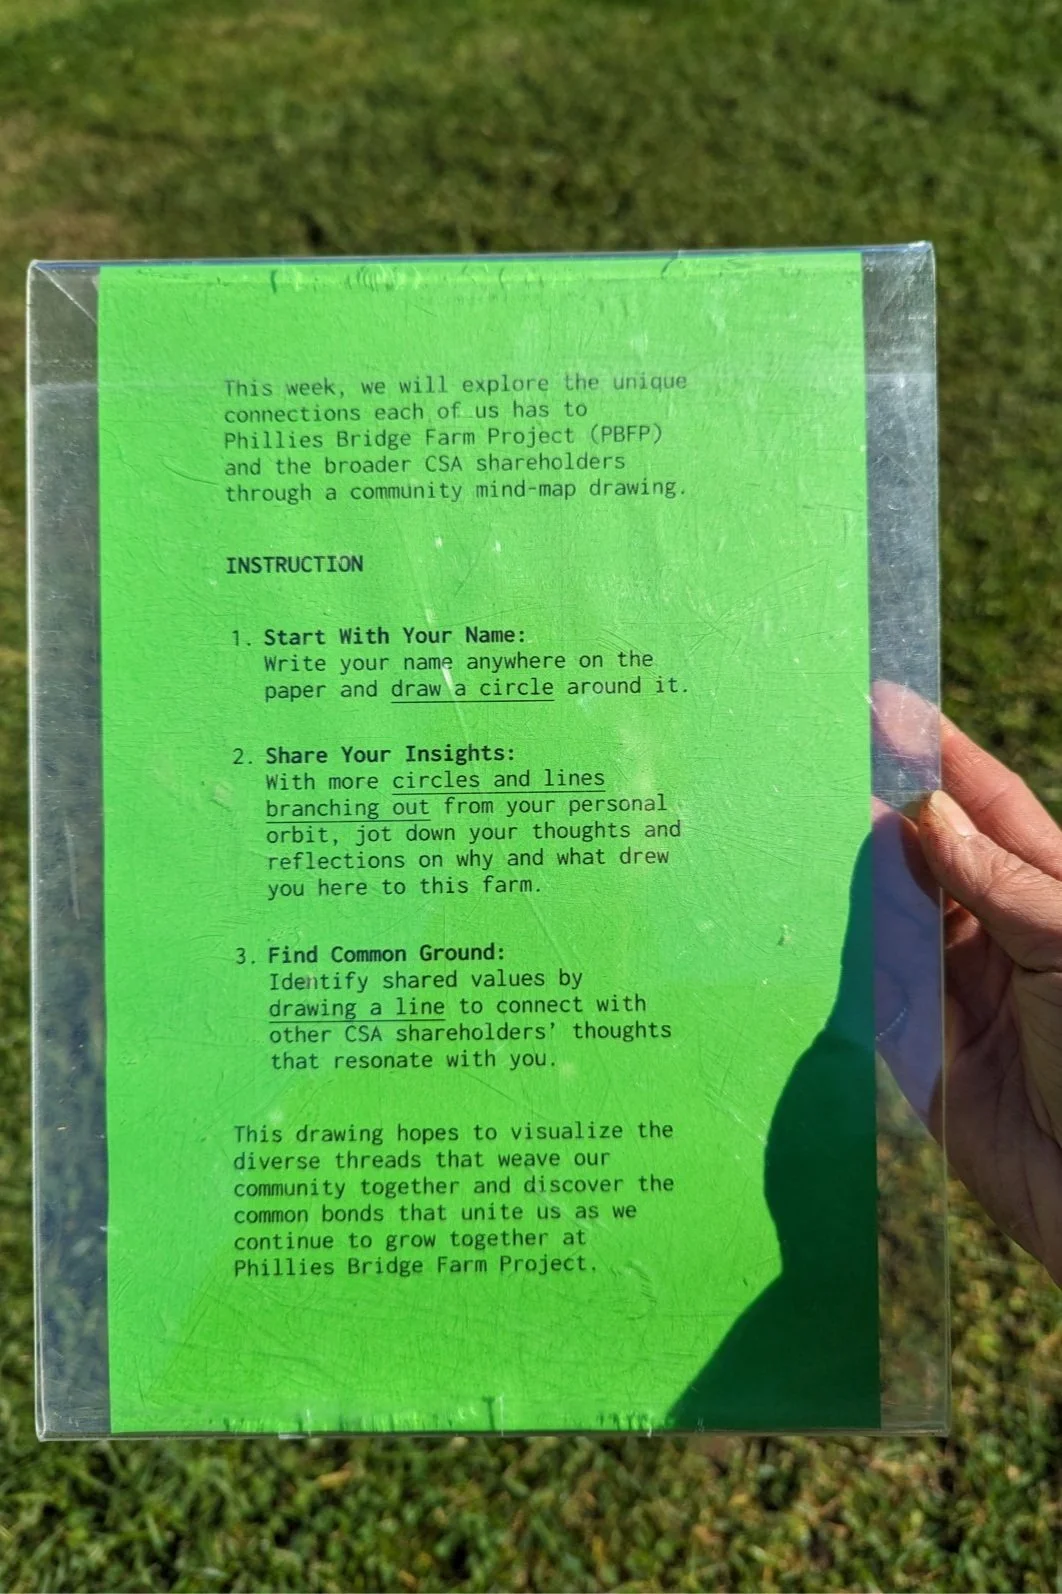 This week, we will explore the unique
connections each of us has to
Phillies Bridge Farm Project (PBFP)
and the broader CSA shareholders
through a community mind-map drawing.
INSTRUCTION
1. Start With Your Name:
Write your name anywhere on the
paper and draw a circle around it.
2. Share Your Insights:
With more circles and lines
branching out from your personal
orbit, jot down your thoughts and
reflections on why and what drew
you here to this farm.
3. Find Common Ground:
Identify shared values by
drawing a line to connect with
other CSA shareholders' thoughts
that resonate with you.
This drawing hopes to visualize the
diverse threads that weave our
community together and discover the
common bonds that unite us as we
continue to grow together at
Phillies Bridge Farm Project.